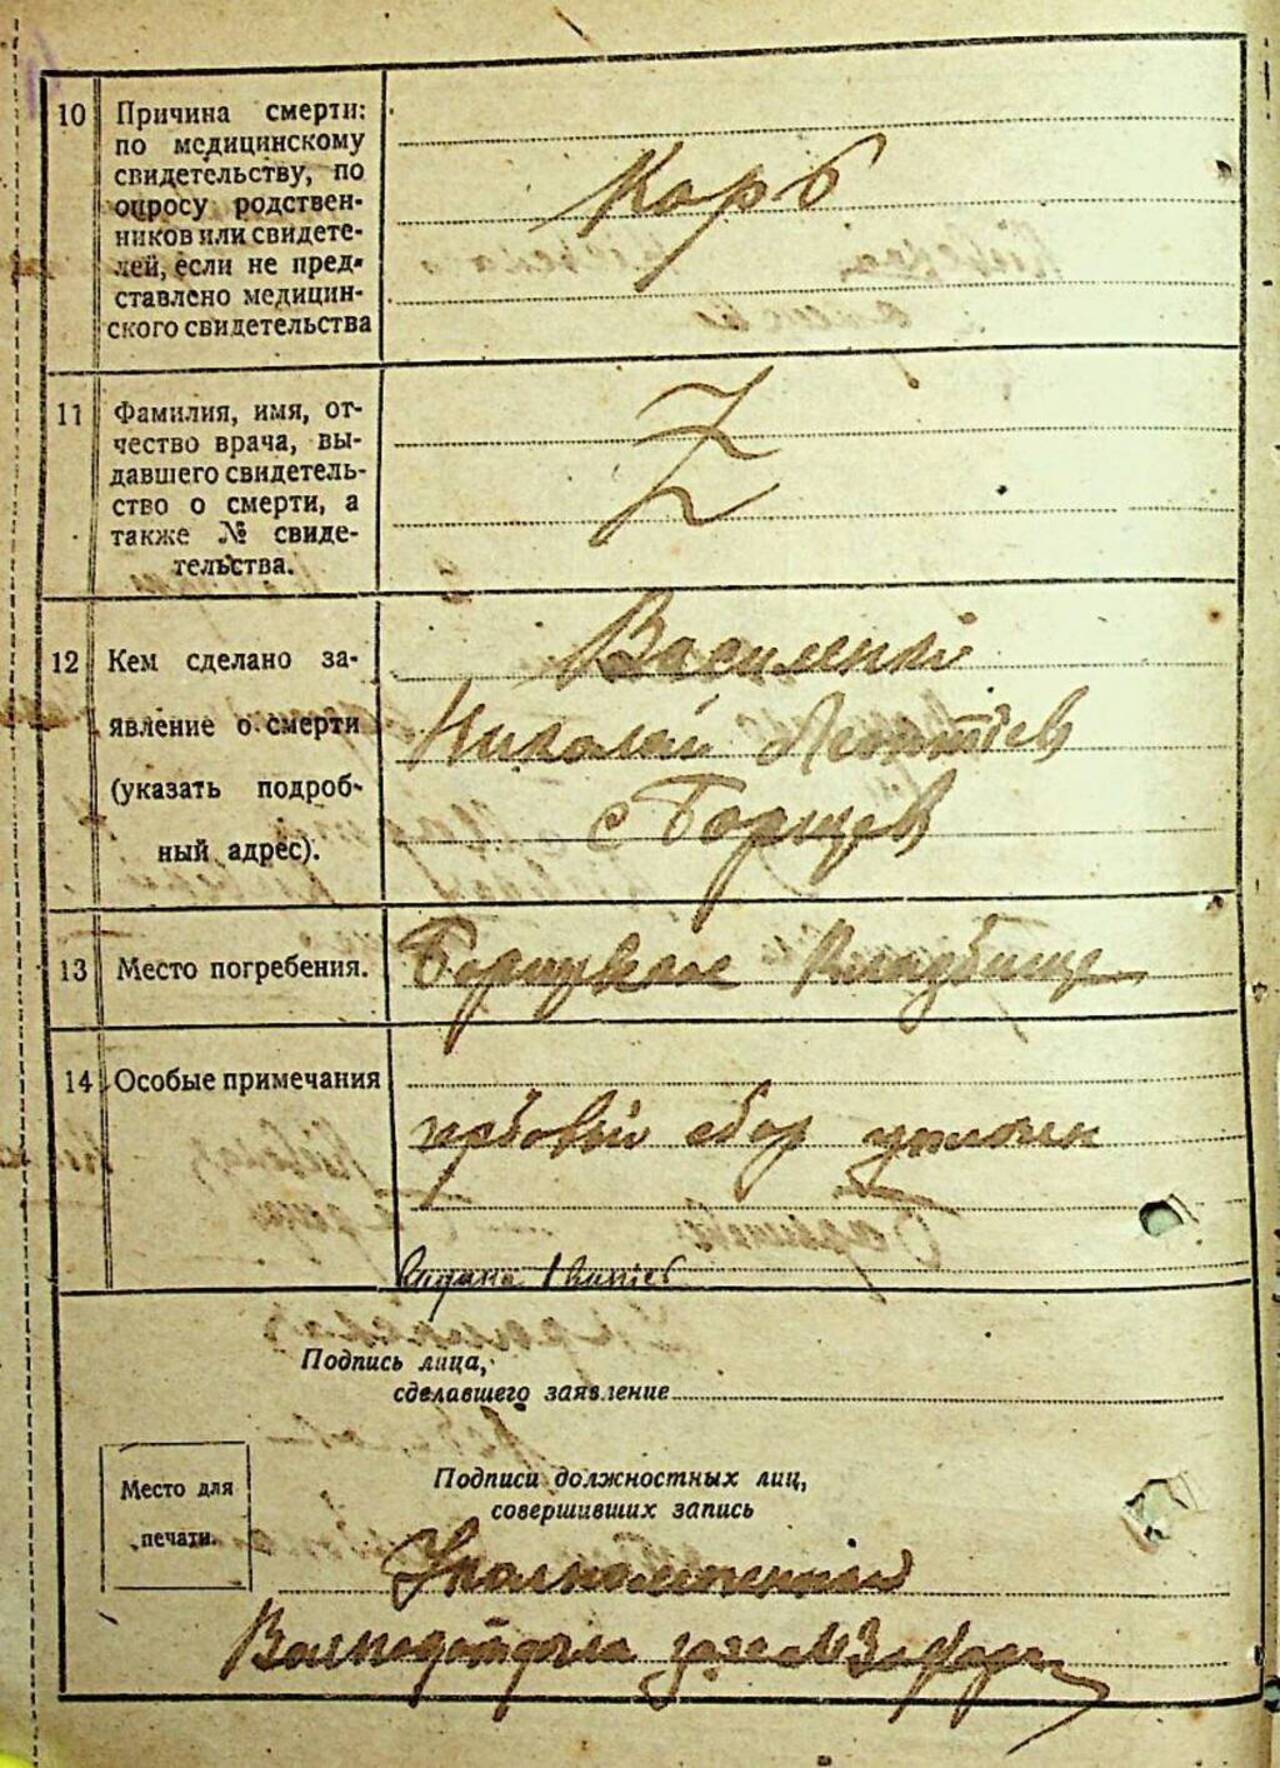 10 Причина смерти:
по медицинскому
свидетельству, по
опросу родствен-
ников или свидете-
лей, если не пред-
ставлено медицин-
ского свидетельства
Корь
11 Фамилия, имя, от-
чество врача, вы-
давшего свидетель-
ство о смерти, а
также № свиде-
тельства.
Z
12 Кем сделано за-
явление о смерти
(указать подроб-
ный адрес).
Василенко
Николай Леонтіев
с Борщев
13 Место погребения.
Борщевское Кладбище
14 Особые примечания
сбор уплочен
Подпись лица,
сделавшего заявление
Место для
печати.
Подписи должностных лиц,
совершивших запись
Уполномоченный